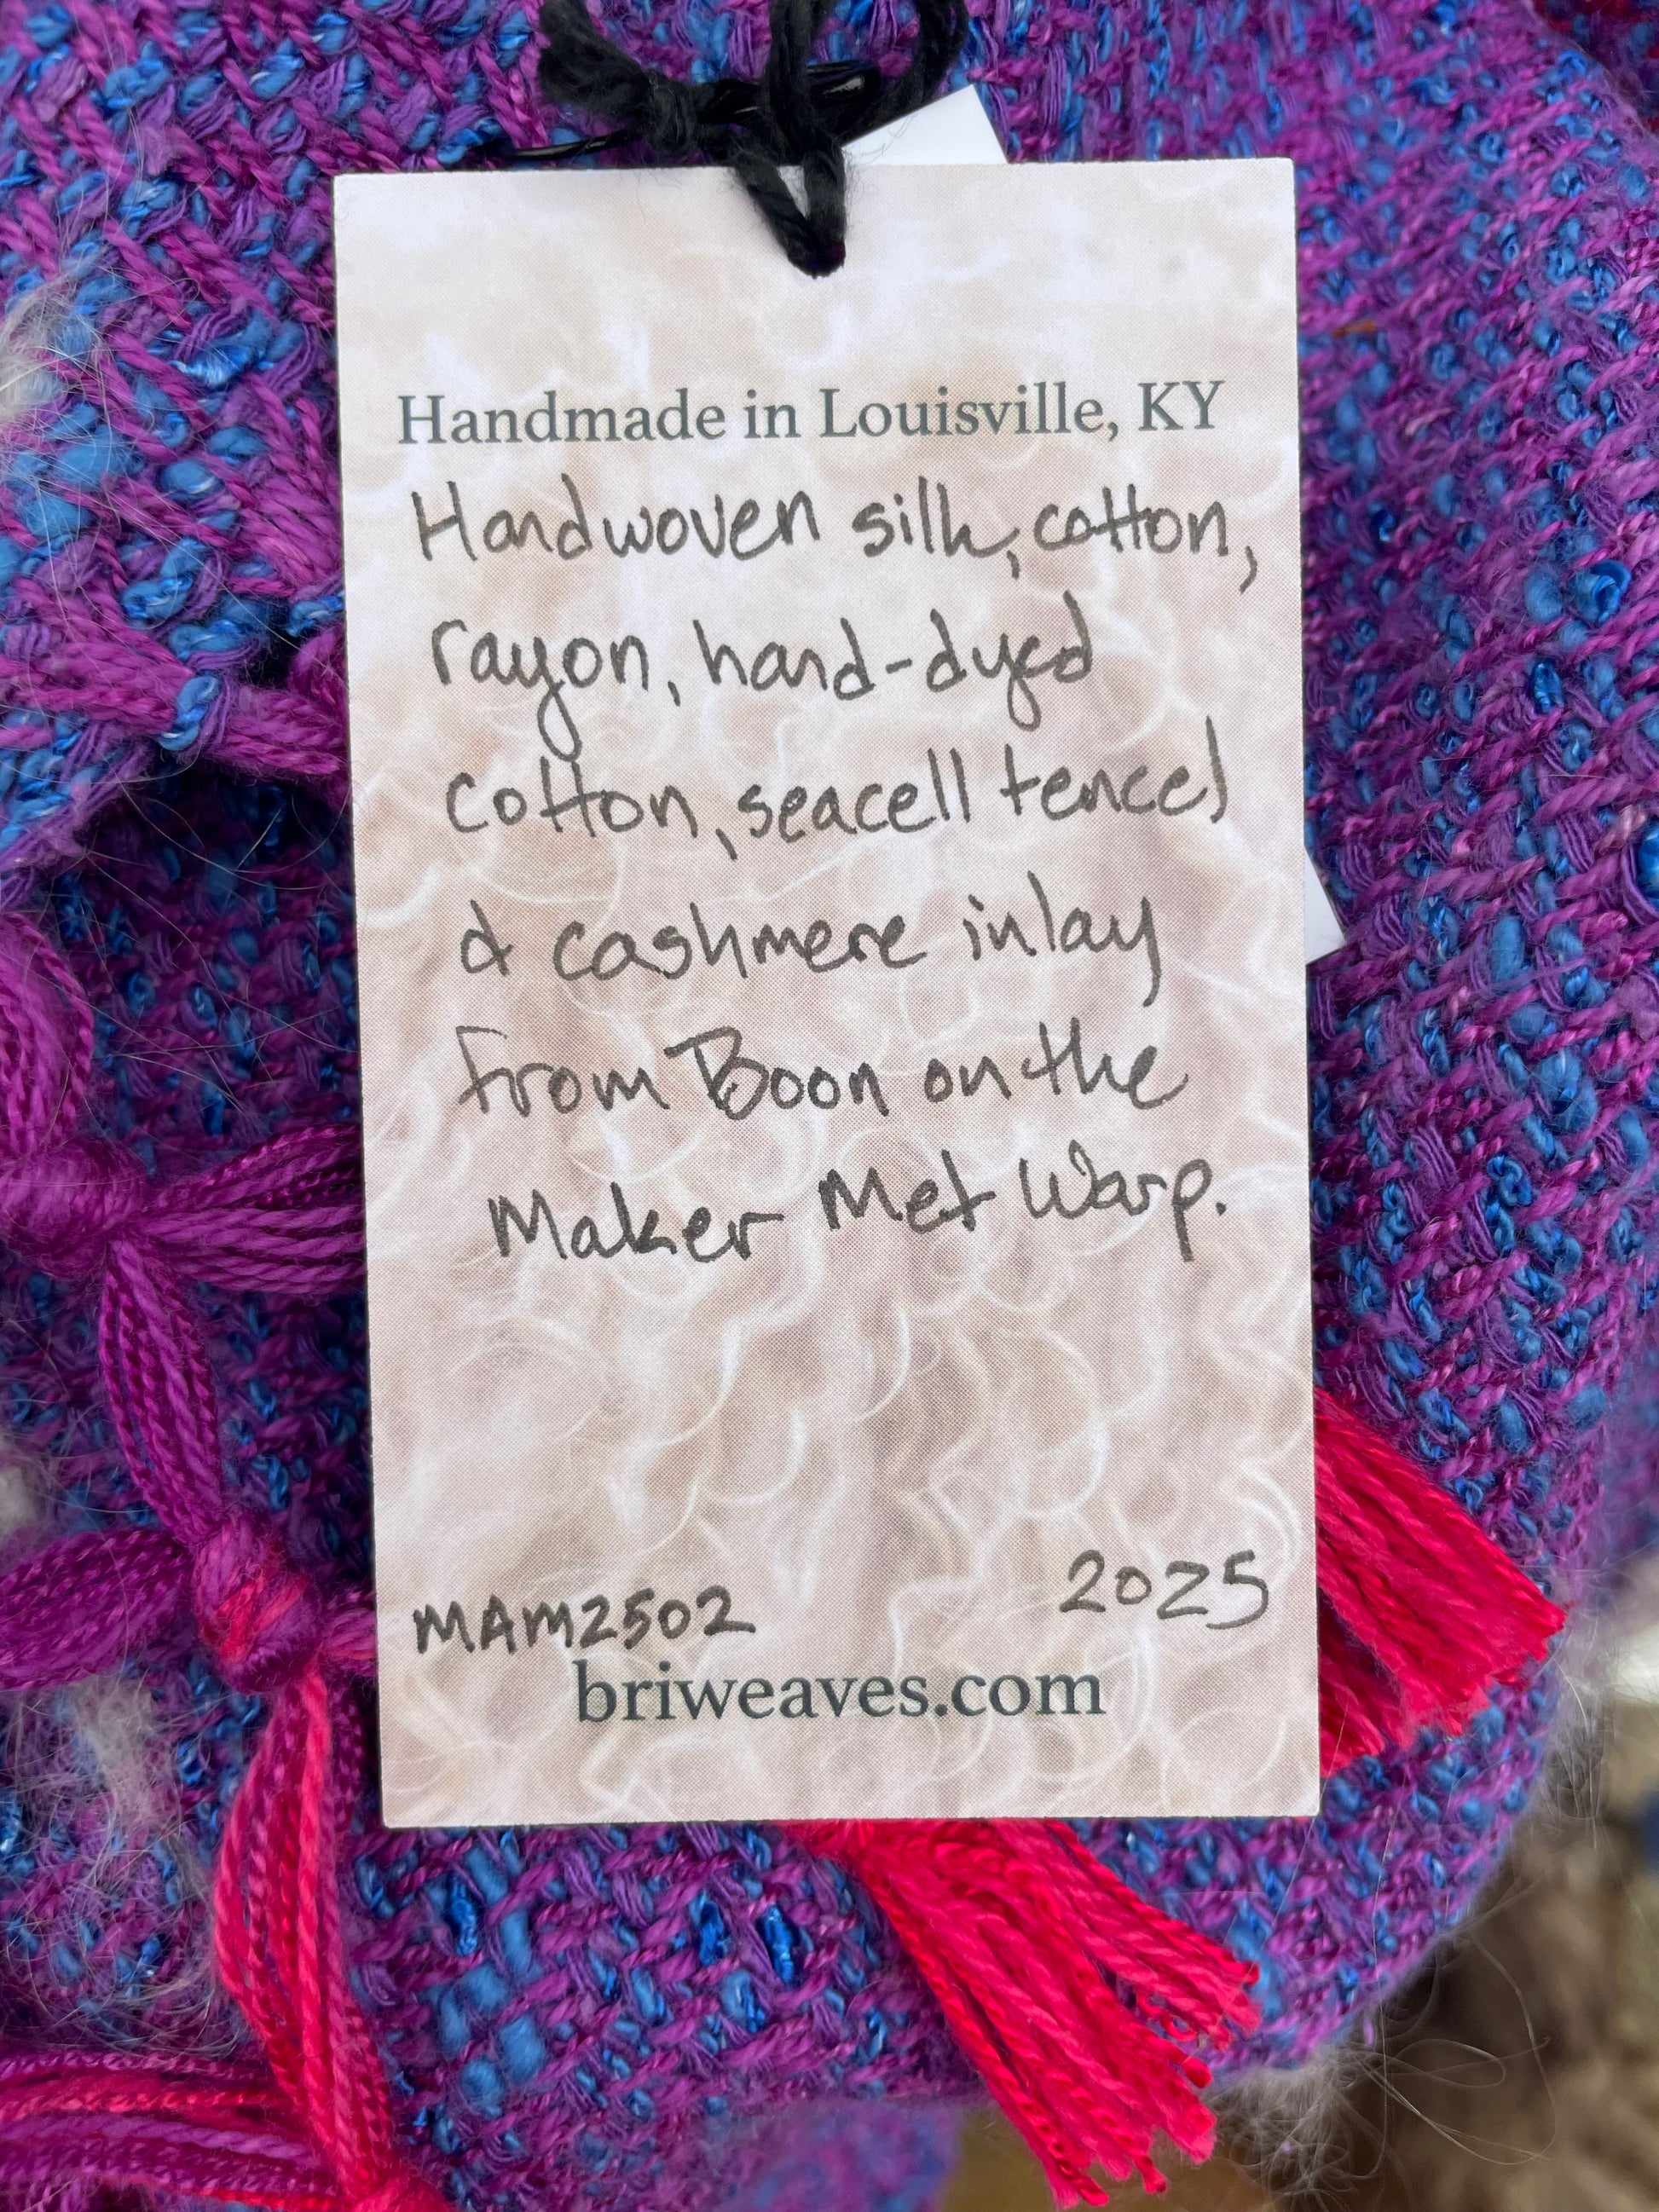 Handmade in Louisville, KY
Handwoven silk, cotton,
rayon, hand-dyed
cotton, seacell tencel
& cashmere inlay
from Boon on the
Maker Met Warp.
MAM2502 2025
briweaves.com